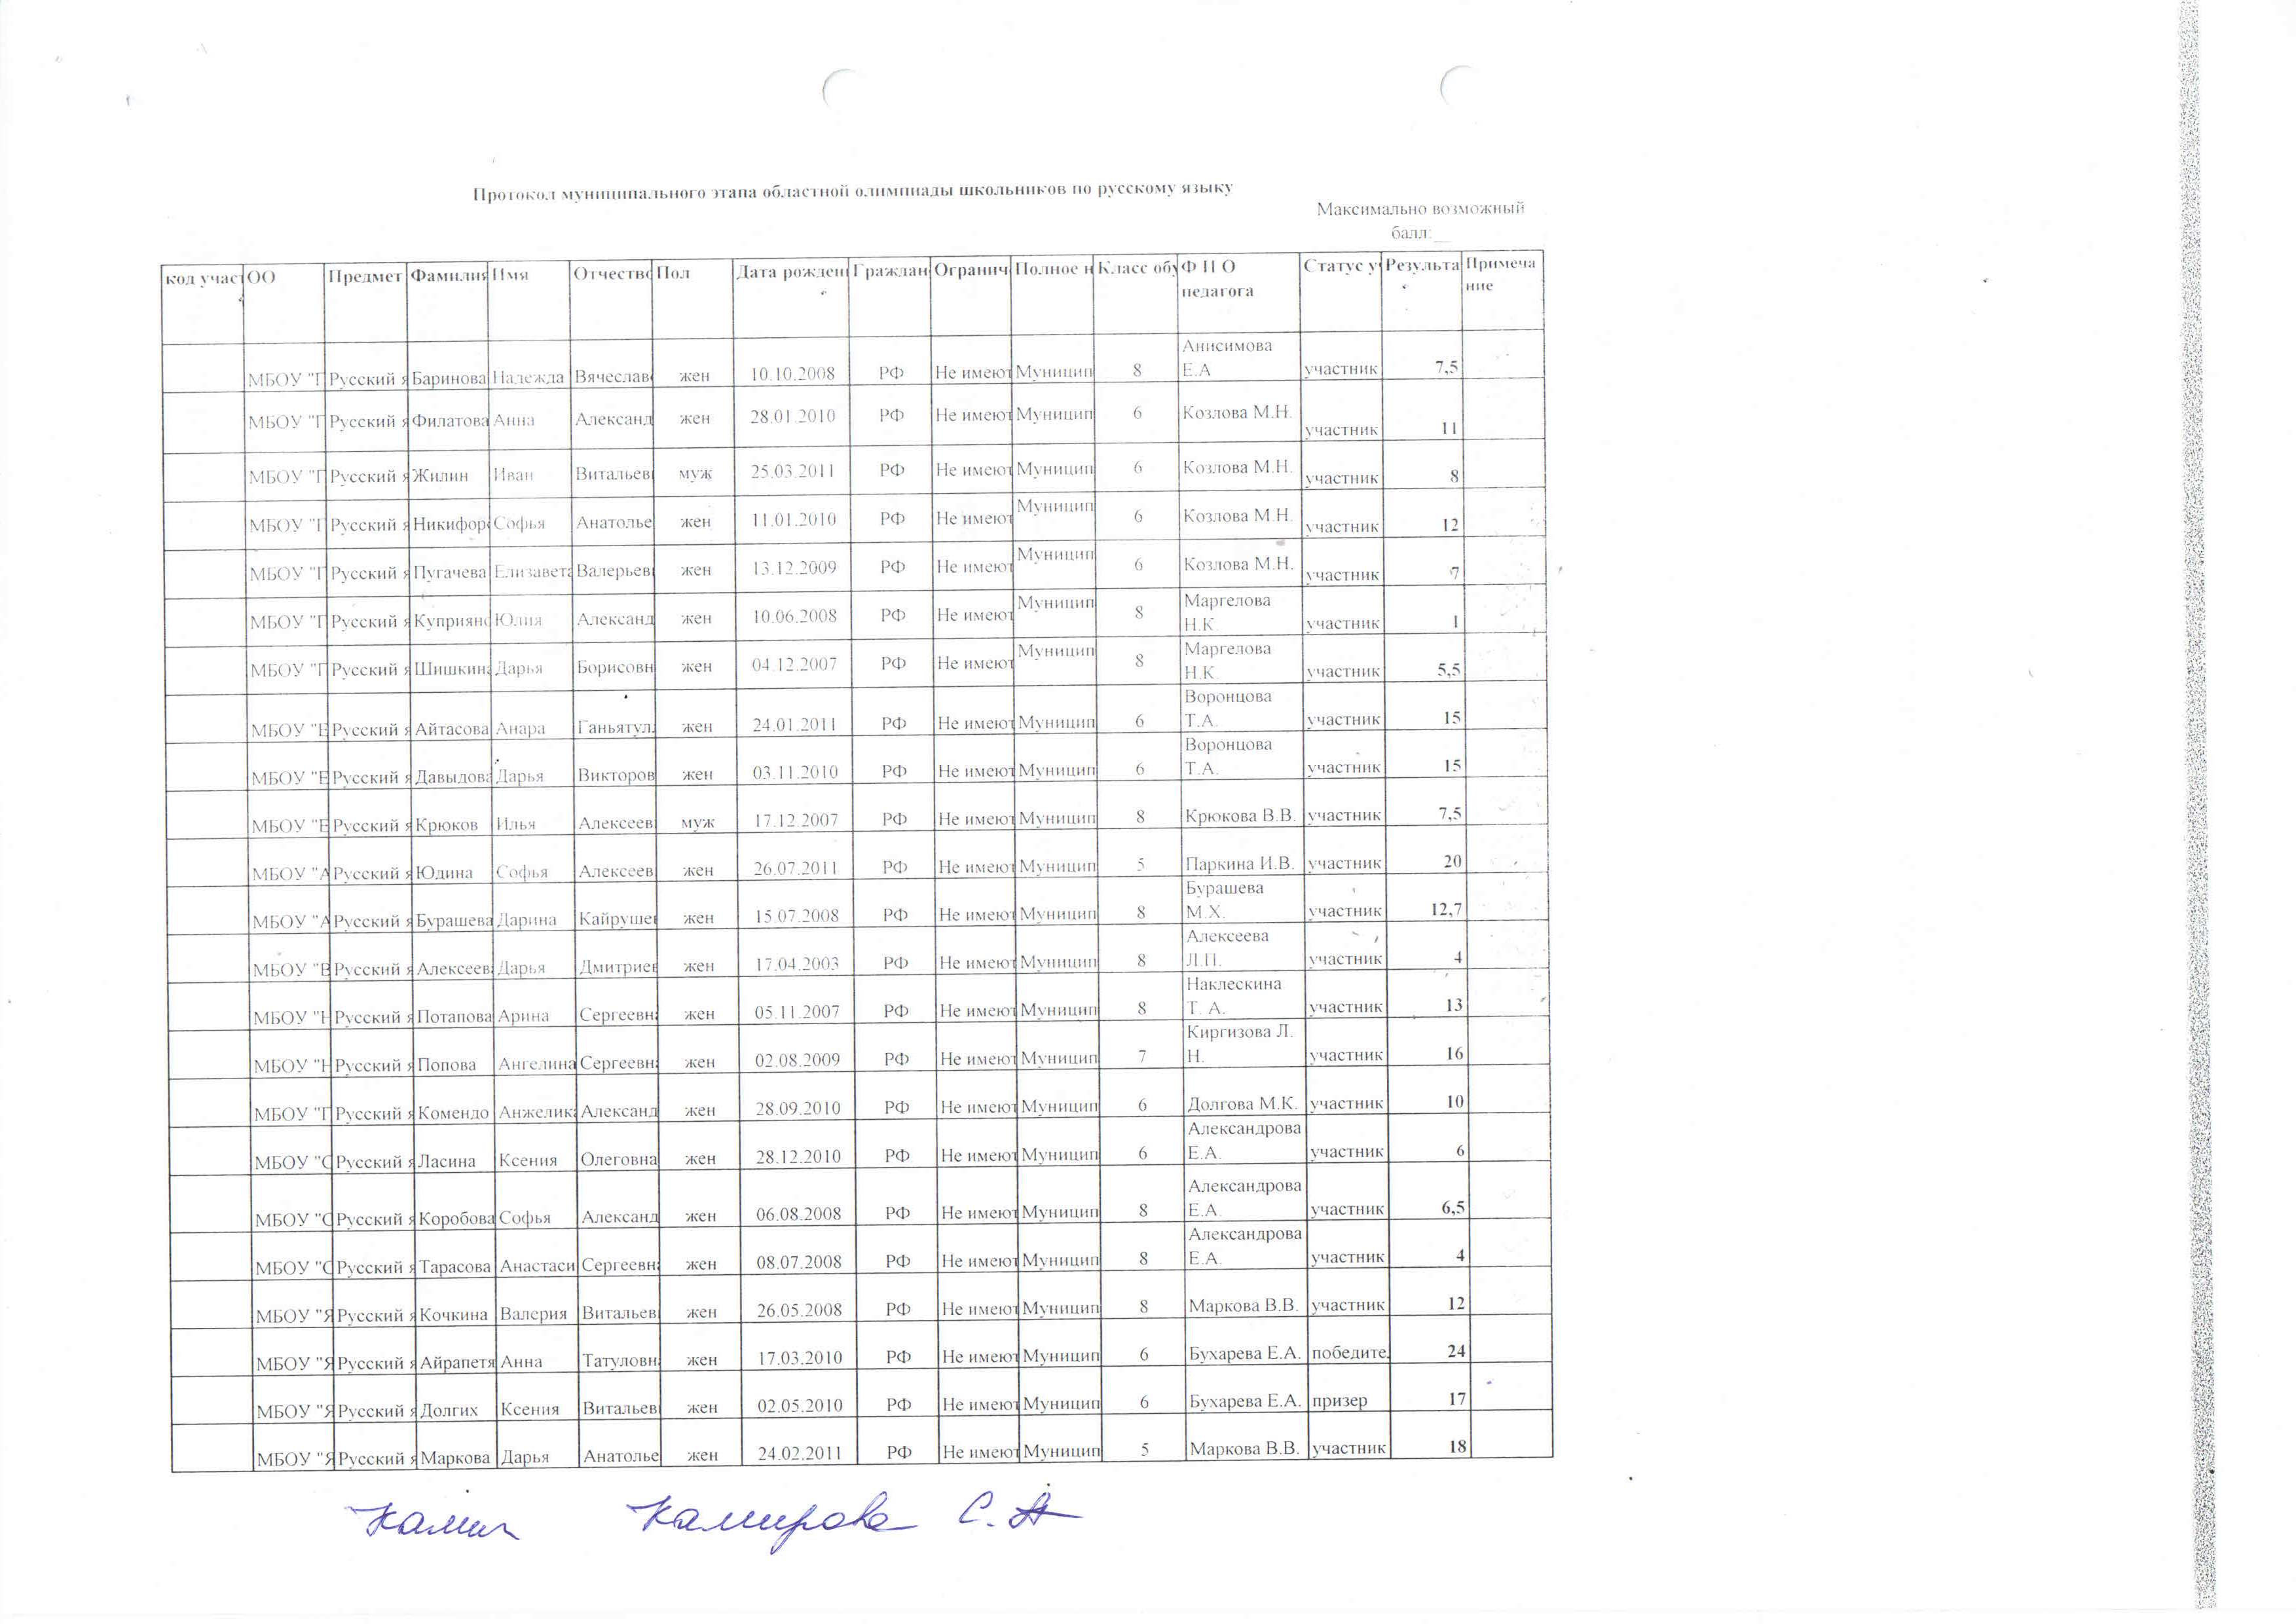 Протокол муниципального этапа областной олимпиады школьников по русскому языку
Максимально возможный
балл:__
код участ ОО Предмет Фамилия Имя Отчество Пол Дата рожден Граждан Огранич Полное н Класс обу Ф И О педагога Статус у Результа Примеча ние
МБОУ "Г Русский я Баринова Надежда Вячеслав жен 10.10.2008 РФ Не имеют Муницип 8 Анисимова Е.А участник 7,5
МБОУ "Г Русский я Филатова Анна Александ жен 28.01.2010 РФ Не имеют Муницип 6 Козлова М.Н. участник 11
МБОУ "Г Русский я Жилин Иван Витальев муж 25.03.2011 РФ Не имеют Муницип 6 Козлова М.Н. участник 8
МБОУ "Г Русский я Никифор Софья Анатолье жен 11.01.2010 РФ Не имеют Муницип 6 Козлова М.Н. участник 12
МБОУ "Г Русский я Пугачева Елизавета Валерьев жен 13.12.2009 РФ Не имеют Муницип 6 Козлова М.Н. участник 7
МБОУ "Г Русский я Куприяно Юлия Александ жен 10.06.2008 РФ Не имеют Муницип 8 Маргелова Н.К. участник 1
МБОУ "Г Русский я Шишкина Дарья Борисовн жен 04.12.2007 РФ Не имеют Муницип 8 Маргелова Н.К. участник 5,5
МБОУ "Е Русский я Айтасова Анара Ганьятул жен 24.01.2011 РФ Не имеют Муницип 6 Воронцова Т.А. участник 15
МБОУ "Е Русский я Давыдова Дарья Викторов жен 03.11.2010 РФ Не имеют Муницип 6 Воронцова Т.А. участник 15
МБОУ "Е Русский я Крюков Илья Алексеев муж 17.12.2007 РФ Не имеют Муницип 8 Крюкова В.В. участник 7,5
МБОУ "А Русский я Юдина Софья Алексеев жен 26.07.2011 РФ Не имеют Муницип 5 Паркина И.В. участник 20
МБОУ "А Русский я Бурашева Дарина Кайруше жен 15.07.2008 РФ Не имеют Муницип 8 Бурашева М.Х. участник 12,7
МБОУ "В Русский я Алексеева Дарья Дмитриев жен 17.04.2003 РФ Не имеют Муницип 8 Алексеева Л.П. участник 4
МБОУ "Н Русский я Потапова Арина Сергеевна жен 05.11.2007 РФ Не имеют Муницип 8 Наклескина Т. А. участник 13
МБОУ "Н Русский я Попова Ангелина Сергеевна жен 02.08.2009 РФ Не имеют Муницип 7 Киргизова Л. Н. участник 16
МБОУ "П Русский я Комендо Анжелика Александ жен 28.09.2010 РФ Не имеют Муницип 6 Долгова М.К. участник 10
МБОУ "С Русский я Ласина Ксения Олеговна жен 28.12.2010 РФ Не имеют Муницип 6 Александрова Е.А. участник 6
МБОУ "С Русский я Коробова Софья Александ жен 06.08.2008 РФ Не имеют Муницип 8 Александрова Е.А. участник 6,5
МБОУ "С Русский я Тарасова Анастаси Сергеевна жен 08.07.2008 РФ Не имеют Муницип 8 Александрова Е.А. участник 4
МБОУ "Я Русский я Кочкина Валерия Витальев жен 26.05.2008 РФ Не имеют Муницип 8 Маркова В.В. участник 12
МБОУ "Я Русский я Айрапетя Анна Татуловна жен 17.03.2010 РФ Не имеют Муницип 6 Бухарева Е.А. победите 24
МБОУ "Я Русский я Долгих Ксения Витальев жен 02.05.2010 РФ Не имеют Муницип 6 Бухарева Е.А. призер 17
МБОУ "Я Русский я Маркова Дарья Анатолье жен 24.02.2011 РФ Не имеют Муницип 5 Маркова В.В. участник 18
Камирова С.А